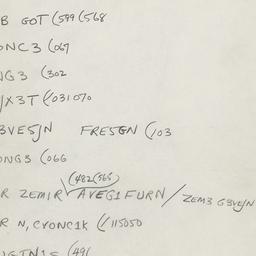 B GOT (599 (568
ONC3 (067
NG3 (302
/X3T (/031070
3VE5/N FRE5GN (/03
ONG3 (066
(482(565)
R ZEM1R AVEG1FURN / ZEM3 G3VE/N
R N, CYONC1K (/115050
(491